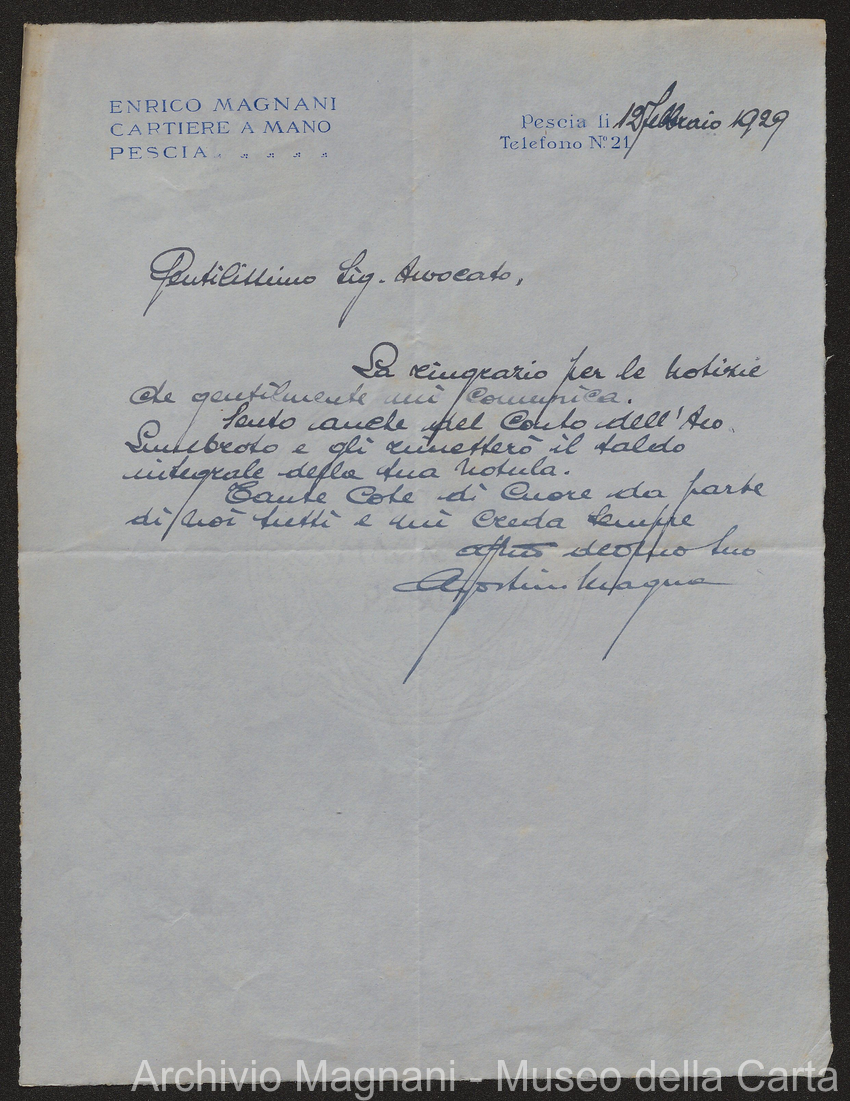 ENRICO MAGNANI
CARTIERE A MANO
PESCIA
Pescia li 12 Febbraio 1929
Telefono Nº 21
Gentilissimo Sig. Avvocato,
La ringrazio per le notizie
che gentilmente mi comunica.
Sento anche del Conto dell'Avv.
Lumbroso e gli rimetterò il saldo
integrale della sua notula.
Tante Cose di Cuore da parte
di noi tutti e mi Creda sempre
devmo Suo
Magna
Archivio Magnani - Museo della Carta